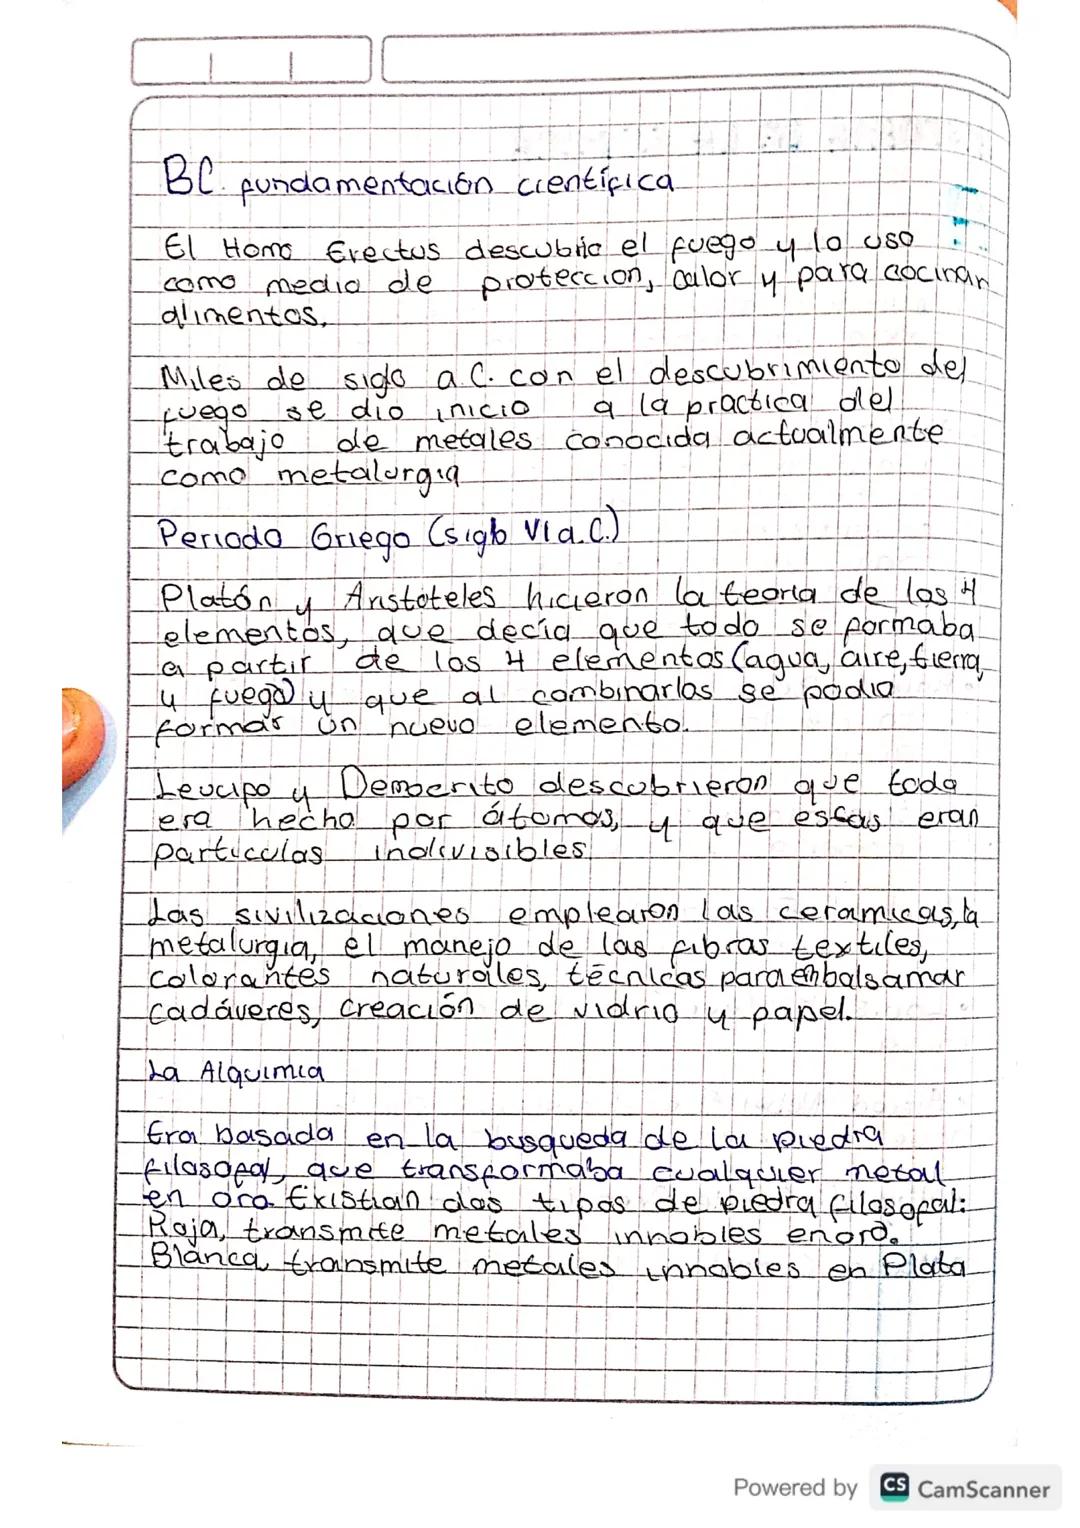 BC. fundamentación científica
El Homo Erectus descubrio el fuego y lo uso
como medio de proteccion, calor y para cocinar
alimentos.
Miles de siglo a.C. con el descubrimiento del
fuego se dio inicio a la practica del
trabajo de metales conocida actualmente
como metalurgia
Periodo Griego (siglo VI a.C.)
Platón y Aristoteles hicieron la teoria de los 4
elementos, que decia que todo se formaba
a partir de los 4 elementos (agua, aire, tierra,
y fuego) y que al combinarlos se podia
formar un nuevo elemento.
Leucipo y Democrito descubrieron que todo
era hecho por átomos, y que estas eran
particulas indivisibles
Las sivilizaciones emplearon las ceramicas, la
metalurgia, el manejo de las fibras textiles,
colorantes naturales, técnicas para embalsamar
cadáveres, creación de vidrio y papel.
La Alquimia
Era basada en la busqueda de la piedra
filosofal, que transformaba cualquier metal
en oro. Existian dos tipos de piedra filosofal:
Roja, transmite metales innobles en oro.
Blanca, transmite metales innobles en Plata
Powered by CS CamScanner